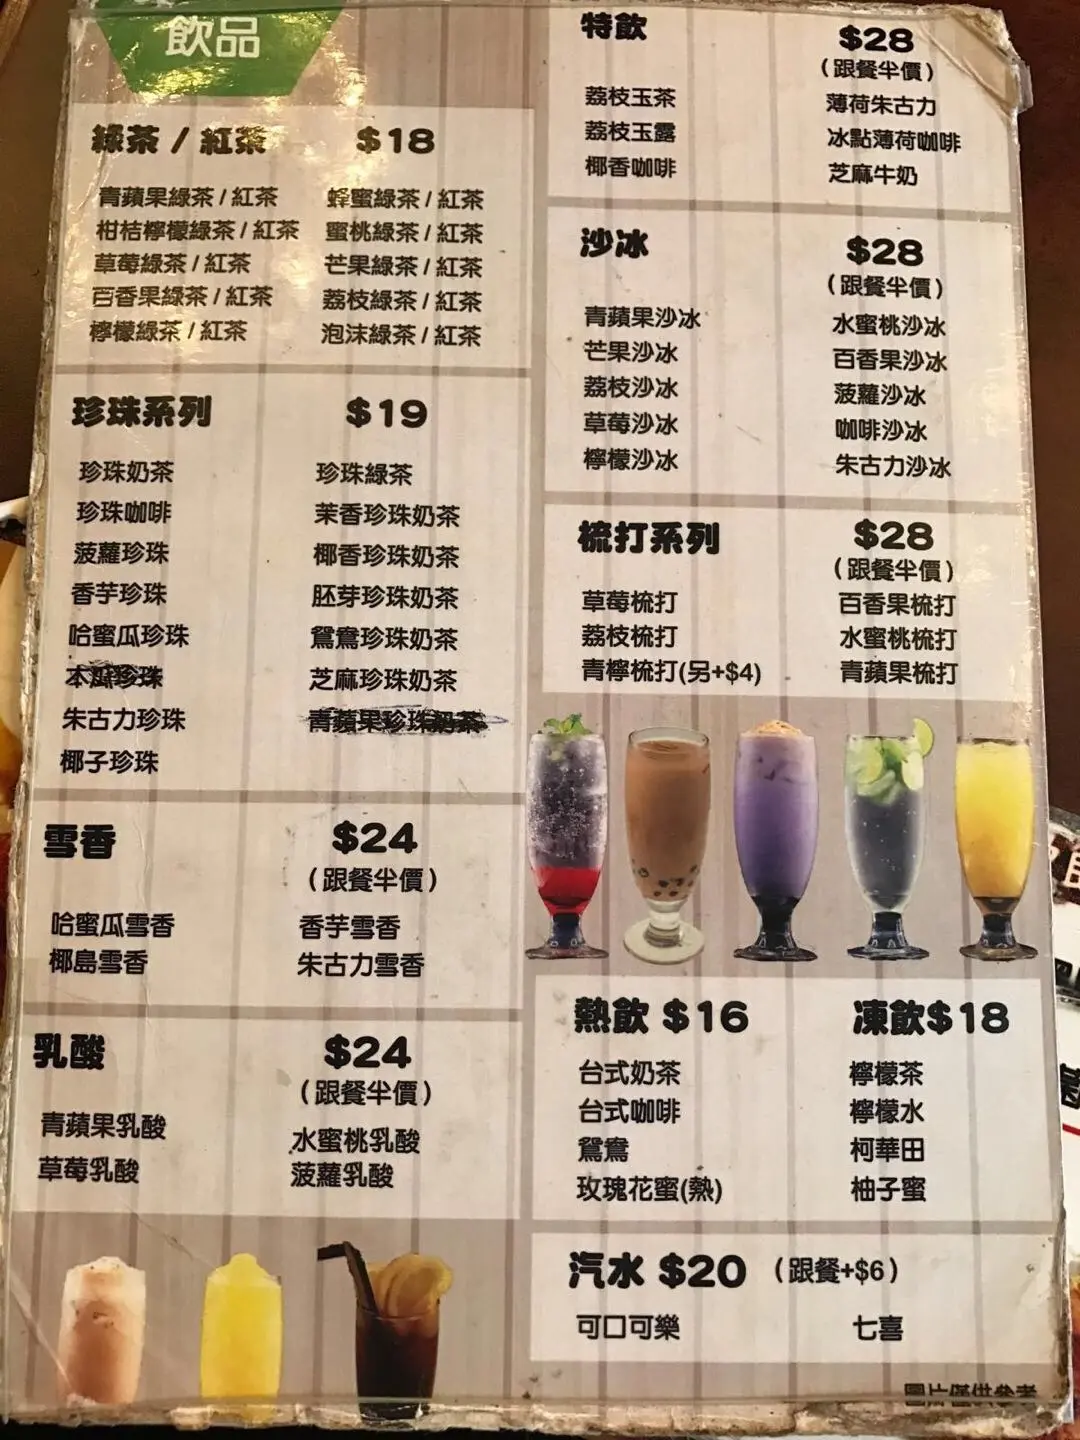 飲品
綠茶 / 紅茶 $18
青蘋果綠茶 / 紅茶 蜂蜜綠茶 / 紅茶
柑桔檸檬綠茶 / 紅茶 蜜桃綠茶 / 紅茶
草莓綠茶 / 紅茶 芒果綠茶 / 紅茶
百香果綠茶 / 紅茶 荔枝綠茶 / 紅茶
檸檬綠茶 / 紅茶 泡沫綠茶 / 紅茶
珍珠系列 $19
珍珠奶茶 珍珠綠茶
珍珠咖啡 茉香珍珠奶茶
菠蘿珍珠 椰香珍珠奶茶
香芋珍珠 胚芽珍珠奶茶
哈蜜瓜珍珠 鴛鴦珍珠奶茶
木瓜珍珠 芝麻珍珠奶茶
朱古力珍珠 青蘋果珍珠奶茶
椰子珍珠
雪香 $24
(跟餐半價)
哈蜜瓜雪香 香芋雪香
椰島雪香 朱古力雪香
乳酸 $24
(跟餐半價)
青蘋果乳酸 水蜜桃乳酸
草莓乳酸 菠蘿乳酸
特飲 $28
(跟餐半價)
荔枝玉茶 薄荷朱古力
荔枝玉露 冰點薄荷咖啡
椰香咖啡 芝麻牛奶
沙冰 $28
(跟餐半價)
青蘋果沙冰 水蜜桃沙冰
芒果沙冰 百香果沙冰
荔枝沙冰 菠蘿沙冰
草莓沙冰 咖啡沙冰
檸檬沙冰 朱古力沙冰
梳打系列 $28
(跟餐半價)
草莓梳打 百香果梳打
荔枝梳打 水蜜桃梳打
青檸梳打(另+$4) 青蘋果梳打
熱飲 $16 凍飲$18
台式奶茶 檸檬茶
台式咖啡 檸檬水
鴛鴦 柯華田
玫瑰花蜜(熱) 柚子蜜
汽水 $20 (跟餐+$6)
可口可樂 七喜
圖片僅供參考